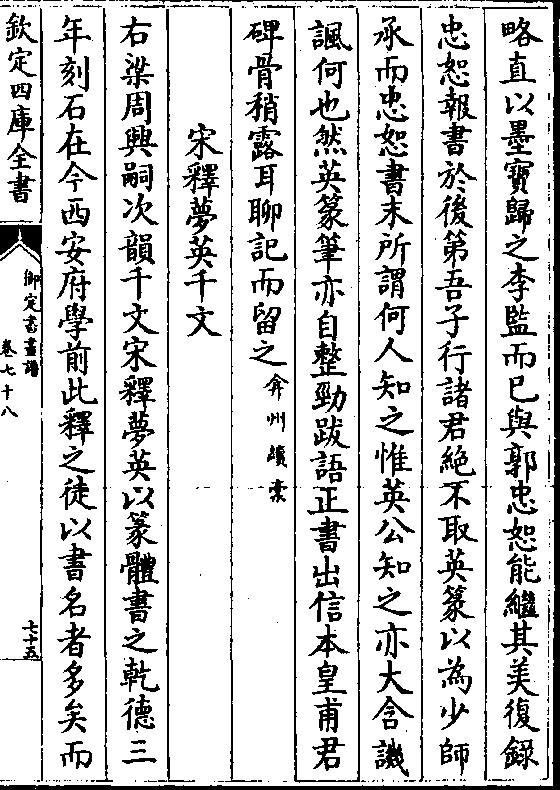 略直以墨寶歸之李監而已與郭忠恕能繼其美復録
忠恕報書於後第吾子行諸君絶不取英篆以為少師
承而忠恕書末所謂何人知之惟英公知之亦大含譏
諷何也然英篆筆亦自整勁跋語正書出信本皇甫君
碑骨稍露耳聊記而留之弇州續稾
宋釋夢英千文
右梁周興嗣次韻千文宋釋夢英以篆體書之乾德三
年刻石在今西安府學前此釋之徒以書名者多矣而
欽定四庫全書
御定書畫譜
卷七十八
七十五